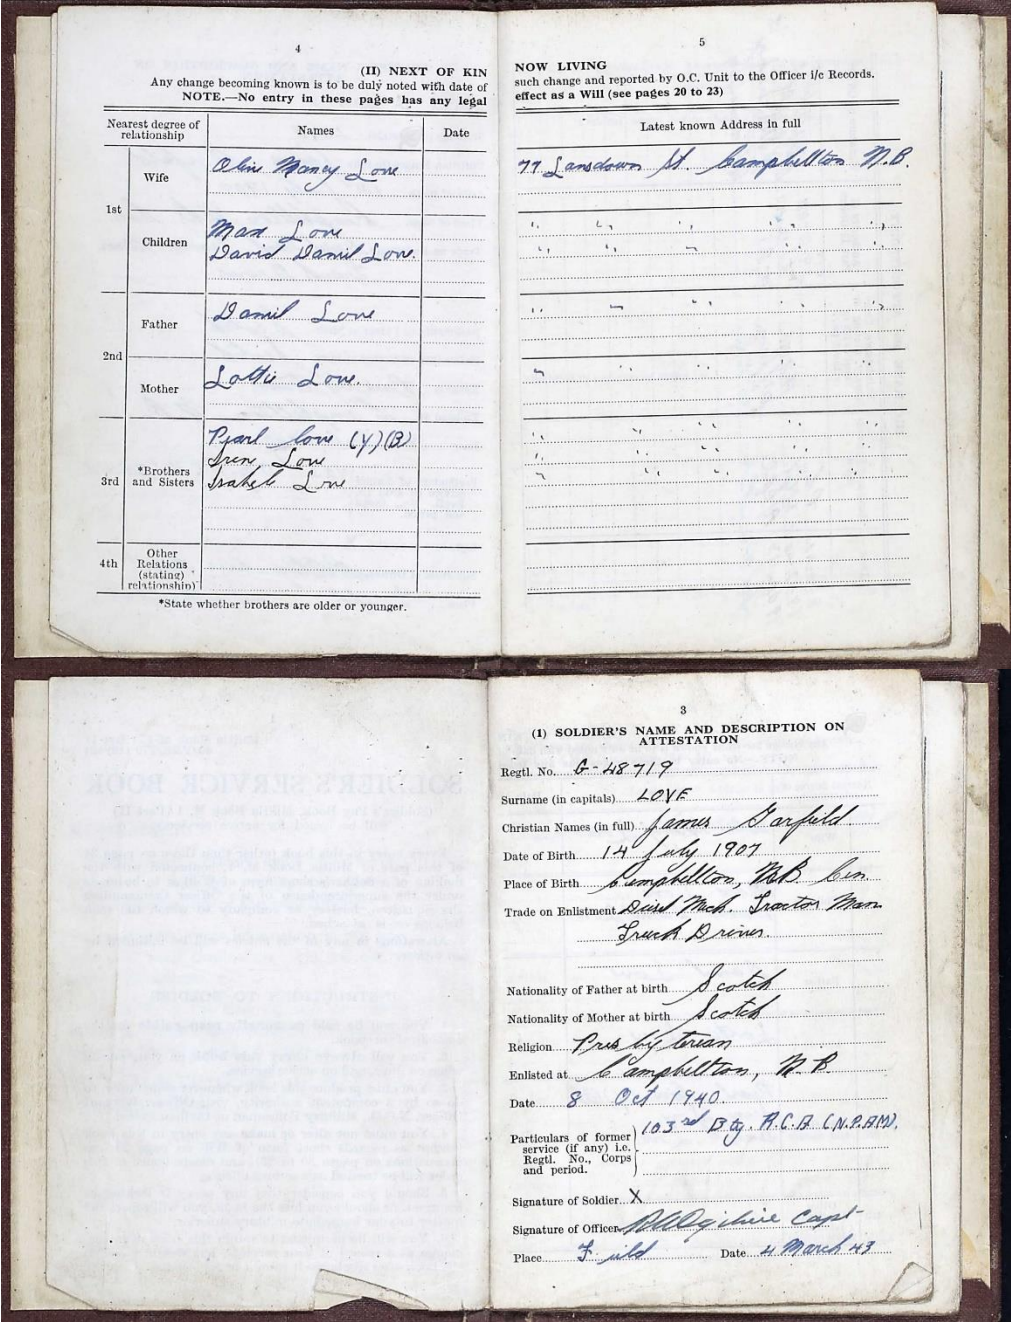 4
(II) NEXT OF KIN
Any change becoming known is to be duly noted with date of
NOTE.—No entry in these pages has any legal
Nearest degree of relationship
Names
Date
1st
Wife
Olive Nancy Love
Children
Max Love
David Daniel Love.
2nd
Father
Daniel Love
Mother
Lottie Love.
3rd
*Brothers and Sisters
Pearl Love (Y) (B)
Irene Love
Isabele Love
4th
Other Relations (stating) relationship)
*State whether brothers are older or younger.
5
NOW LIVING
such change and reported by O.C. Unit to the Officer i/c Records.
effect as a Will (see pages 20 to 23)
Latest known Address in full
77 Lansdown St. Campbellton N.B.
" " " " "
" " " " "
" " " " "
" " " "
" " "
" " "
" " "
SOLDIER'S SERVICE BOOK
3
(I) SOLDIER'S NAME AND DESCRIPTION ON
ATTESTATION
Regtl. No. G-48719
Surname (in capitals) LOVE
Christian Names (in full) James Garfield
Date of Birth 14 July 1907
Place of Birth Campbellton, N.B. Can.
Trade on Enlistment Diesel Mech. Tractor Man
Truck Driver.
Nationality of Father at birth Scotch
Nationality of Mother at birth Scotch
Religion Presbyterian
Enlisted at Campbellton, N.B.
Date 8 Oct 1940
Particulars of former service (if any) i.e. Regtl. No., Corps and period.
103rd Bty. R.C.A. (N.P.A.M).
Signature of Soldier X
Signature of Officer Ogilvie Capt
Place Field Date 4 March 43